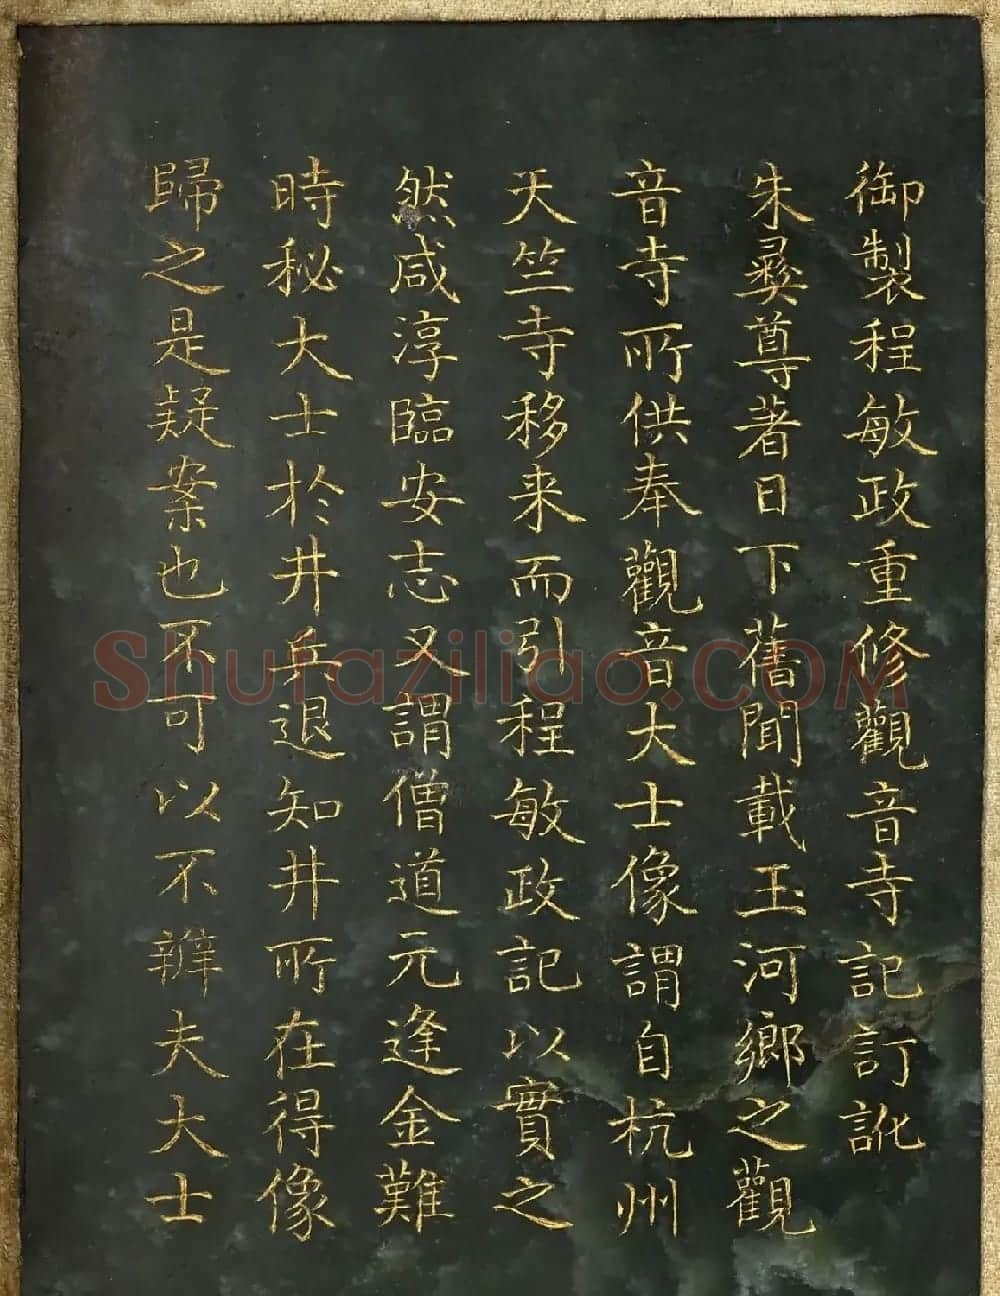 御製程敏政重修觀音寺記訂訛
朱彝尊著日下舊聞載玉河鄉之觀
音寺所供奉觀音大士像謂自杭州
天竺寺移来而引程敏政記以實之
然咸淳臨安志又謂僧道元逢金難
時秘大士於井兵退知井所在得像
歸之是疑案也不可以不辨夫大士
Shufaziliao.COM